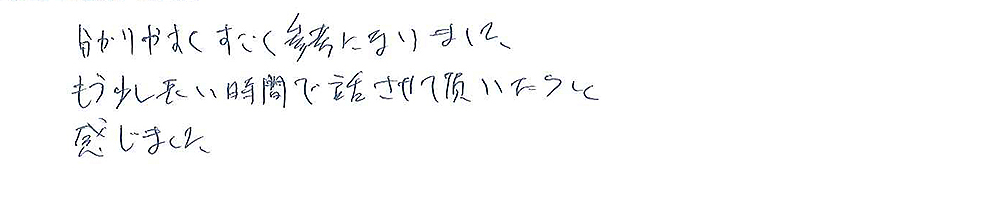 分かりやすくすごく参考になりました、
もう少し長い時間で話させて頂いたらなと
感じました、